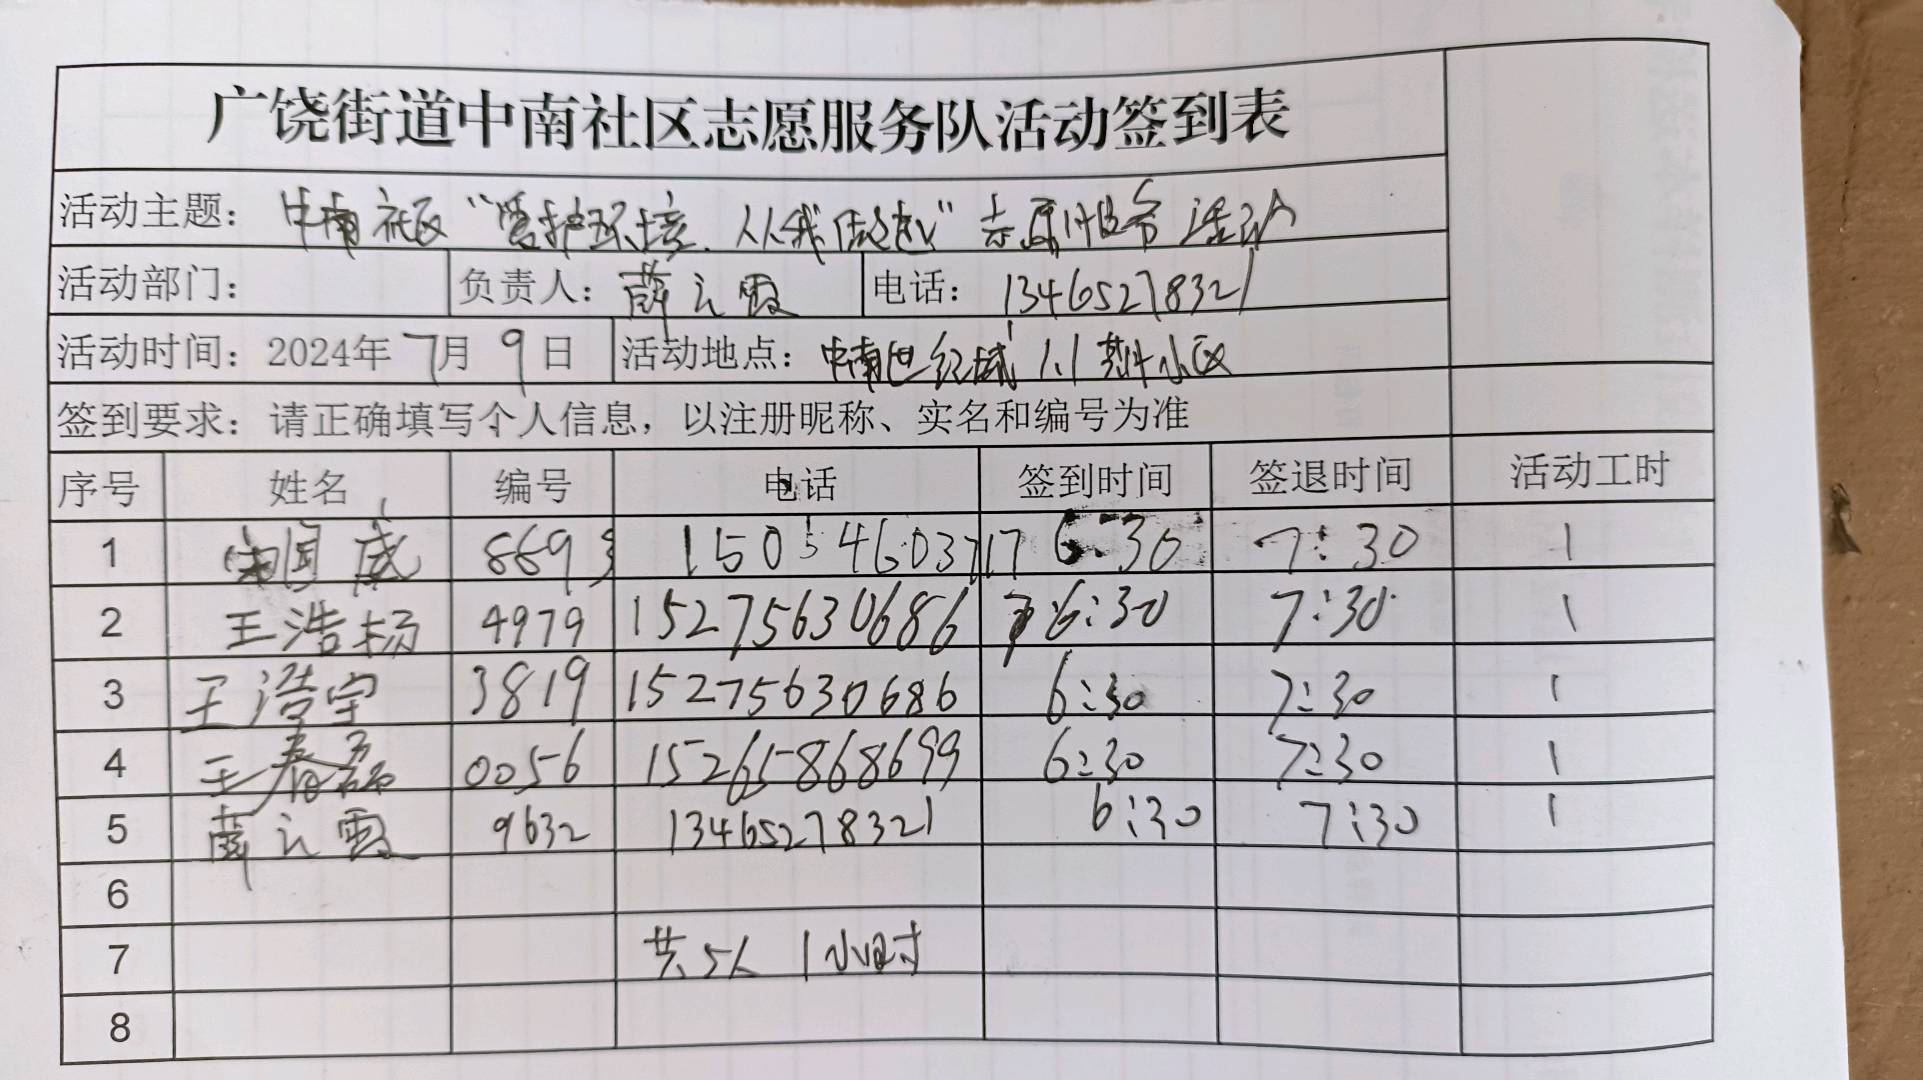 广饶街道中南社区志愿服务队活动签到表
活动主题: 中南社区“爱护环境.从我做起”志愿服务活动
活动部门: 负责人: 薛之霞 电话: 13465278321
活动时间: 2024年 7月 9日 活动地点: 中南世纪城1.1期小区
签到要求: 请正确填写个人信息, 以注册昵称、实名和编号为准
序号 姓名 编号 电话 签到时间 签退时间 活动工时
1 国威 8693 15054603717 6:30 7:30 1
2 王浩扬 4979 15275630686 6:30 7:30 1
3 王浩宇 3819 15275630686 6:30 7:30 1
4 王春磊 0056 15265868699 6:30 7:30 1
5 薛之霞 9632 13465278321 6:30 7:30 1
6
7 共5人 1小时
8